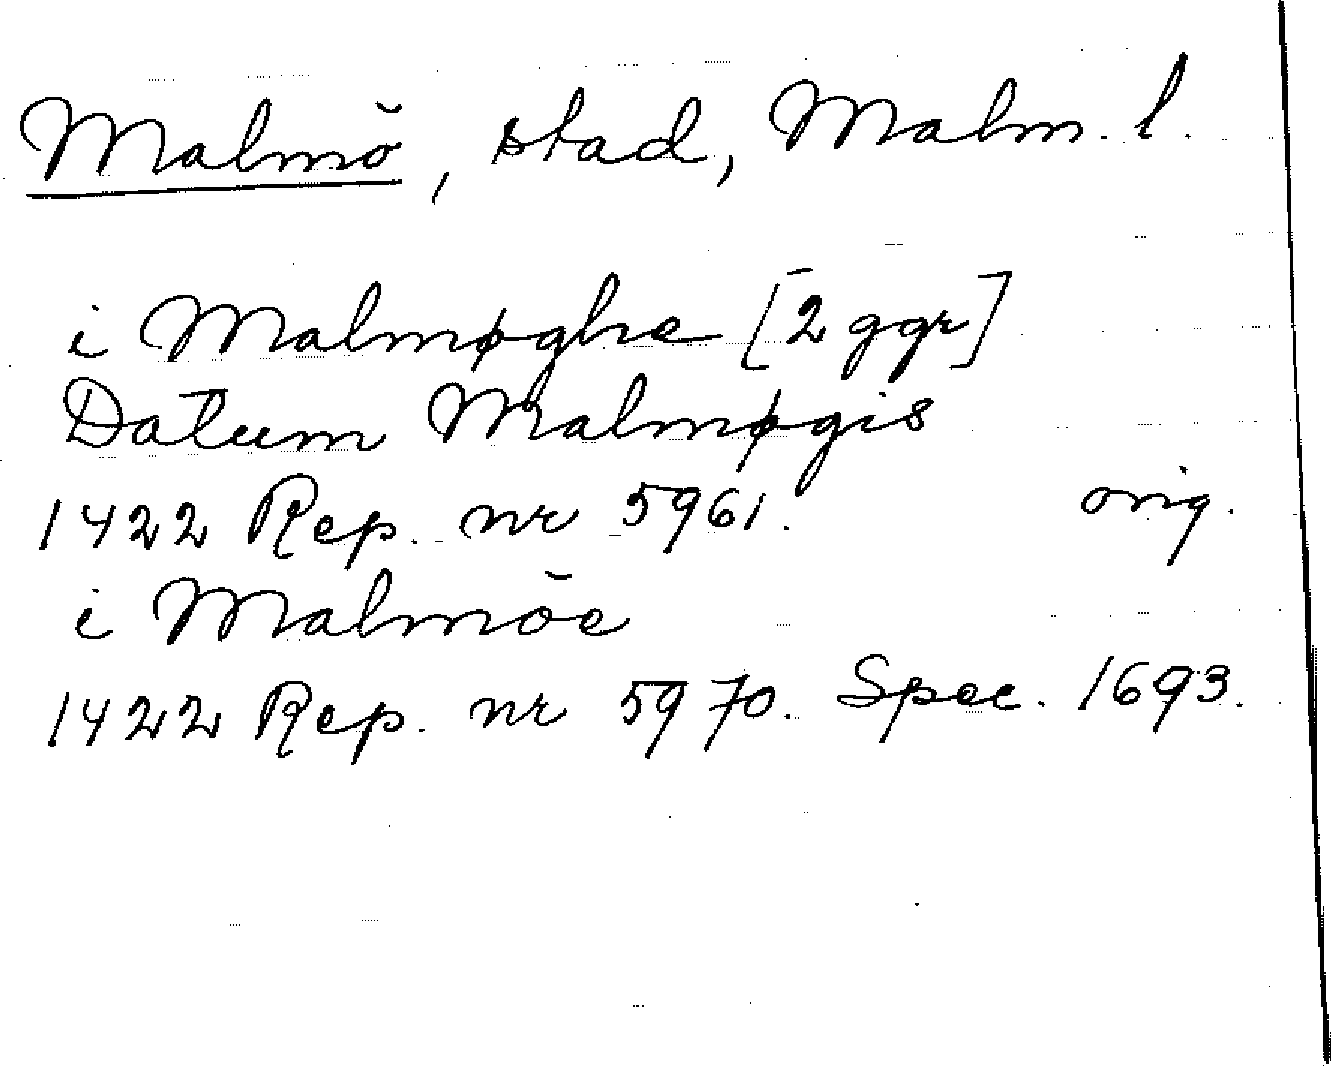 Malmö, stad, Malm. l.
i Malmøghe [2 ggr]
Datum Malmøgis
1422 Rep. nr 5961. orig.
i Malmöe
1422 Rep. nr 5970. Spec. 1693.